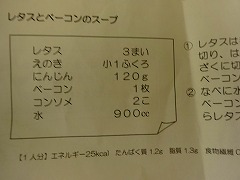 レタスとベーコンのスープ
レタス 3まい
えのき 小1ふくろ
にんじん 120g
ベーコン 1枚
コンソメ 2こ
水 900cc
① レタスは
切り、は
ざくに切
ベーコン
② なべに水
ベーコン
らレタス
【1人分】エネルギー25kcal たんぱく質1.2g 脂質1.3g 食物繊維